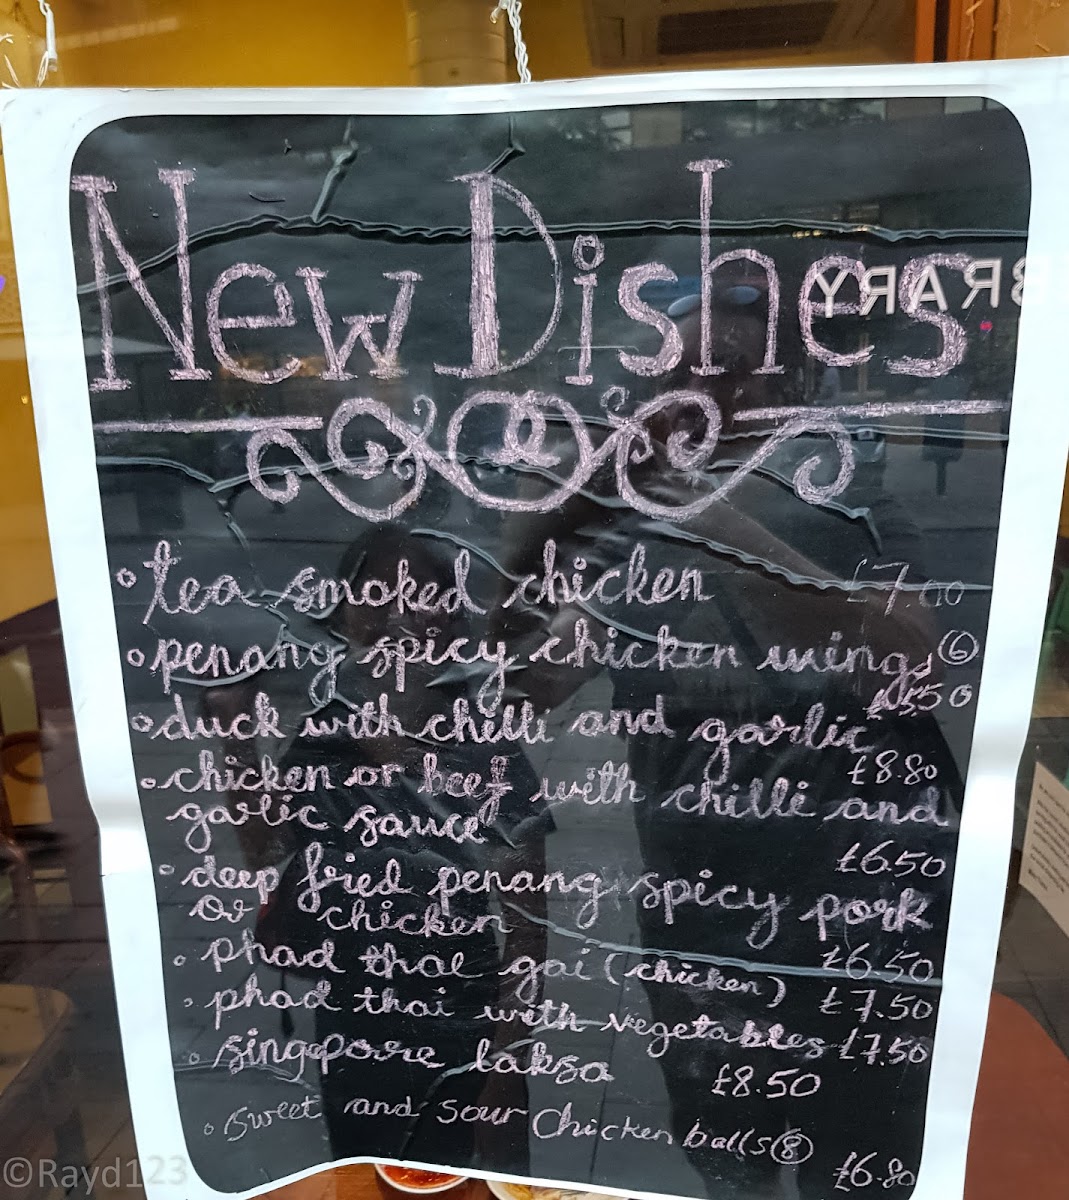 New Dishes
BRARY
• tea smoked chicken £7.00
• penang spicy chicken wings ⑥
£5.50
• duck with chilli and garlic
£8.80
• chicken or beef with chilli and
garlic sauce
£6.50
• deep fried penang spicy pork
or chicken
£6.50
• phad thai gai (chicken) £7.50
• phad thai with vegetables £7.50
• singapore laksa £8.50
• Sweet and Sour Chicken balls ⑧
£6.80
©Rayd123